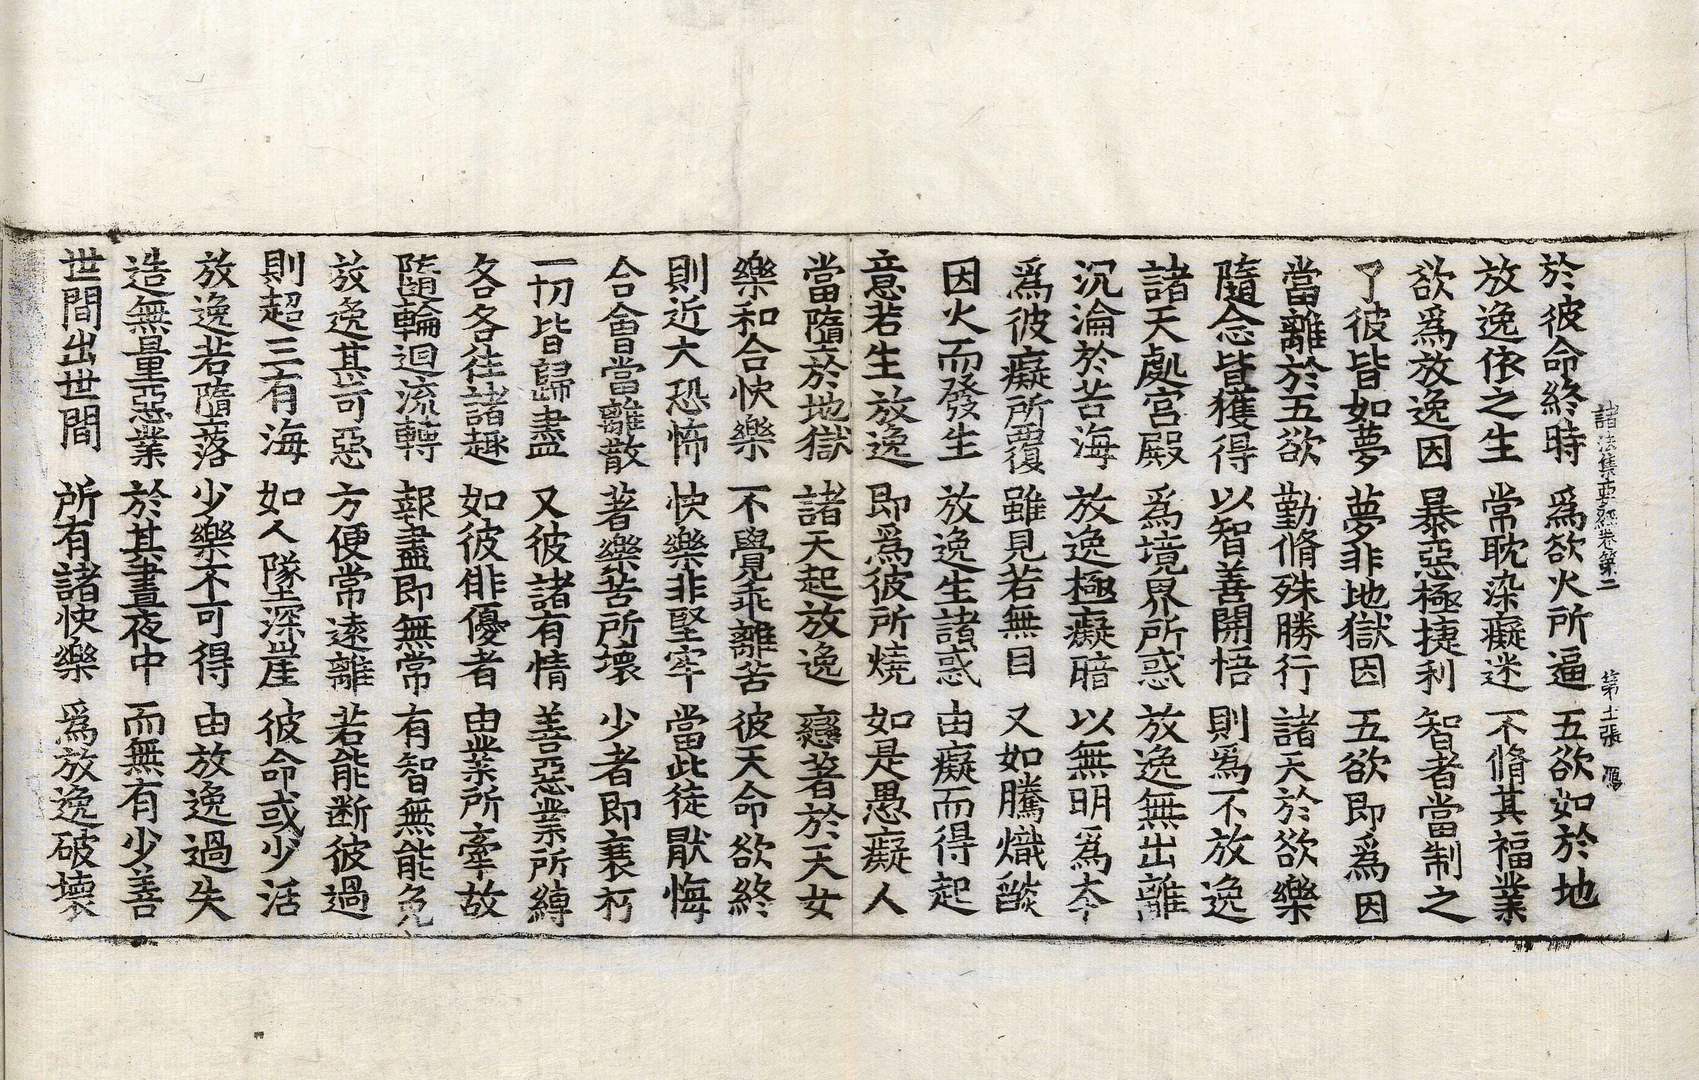 諸法集要經卷第二　第十張　鴈
於彼命終時　爲欲火所逼　五欲如於地
放逸依之生　常耽染癡迷　不脩其福業
欲爲放逸因　暴惡極捷利　智者當制之
了彼皆如夢　夢非地獄因　五欲即爲因
當離於五欲　勤脩殊勝行　諸天於欲樂
隨念皆獲得　以智善開悟　則爲不放逸
諸天處宮殿　爲境界所惑　放逸無出離
沉淪於苦海　放逸極癡暗　以無明爲本
爲彼癡所覆　雖見若無目　又如騰熾燄
因火而發生　放逸生諸惑　由癡而得起
意若生放逸　即爲彼所燒　如是愚癡人
當墮於地獄　諸天起放逸　戀著於天女
樂和合快樂　不覺乖離苦　彼天命欲終
則近大恐怖　快樂非堅牢　當此徒猒悔
合會當離散　著樂苦所壞　少者即衰朽
一切皆歸盡　又彼諸有情　善惡業所縛
各各往諸趣　如彼俳優者　由業所牽故
隨輪迴流轉　報盡即無常　有智無能免
放逸甚可惡　方便常遠離　若能断彼過
則超三有海　如人墜深崖　彼命或少活
放逸若隨落　少樂不可得　由放逸過失
造無量惡業　於其晝夜中　而無有少善
世間出世間　所有諸快樂　爲放逸破壞